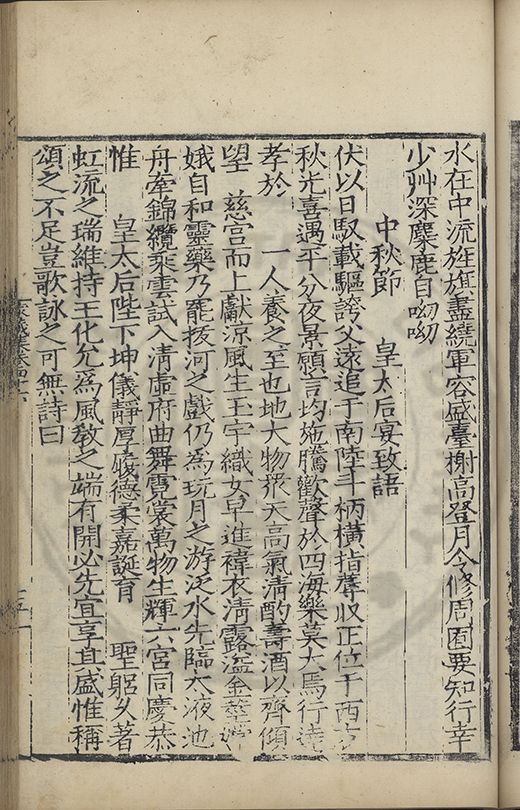 水在中流旌旗盡繞軍容盛臺榭高登月令修周囿要知行幸
少艸深麋鹿自呦呦
中秋節 皇太后宴致語
伏以日馭載驅誇父遠追于南陸斗柄橫指蓐収正位于西方
秋光喜遇平分夜景願言均施騰歡聲於四海樂莫大焉行達
孝於 一人養之至也地大物衆天高氣清酌壽酒以齊傾
望 慈宮而上獻涼風生玉宇織女早進褘衣清露溢金莖
娥自和靈藥乃罷拔河之戲仍為玩月之游泛水先臨太液池
舟牽錦纜乘雲試入清虛府曲舞霓裳萬物生輝六宮同慶恭
惟 皇太后陛下坤儀靜厚懿德柔嘉誕育 聖躬久著
虹流之瑞維持王化允為風教之端有開必先宜享其盛惟稱
頌之不足豈歌詠之可無詩曰